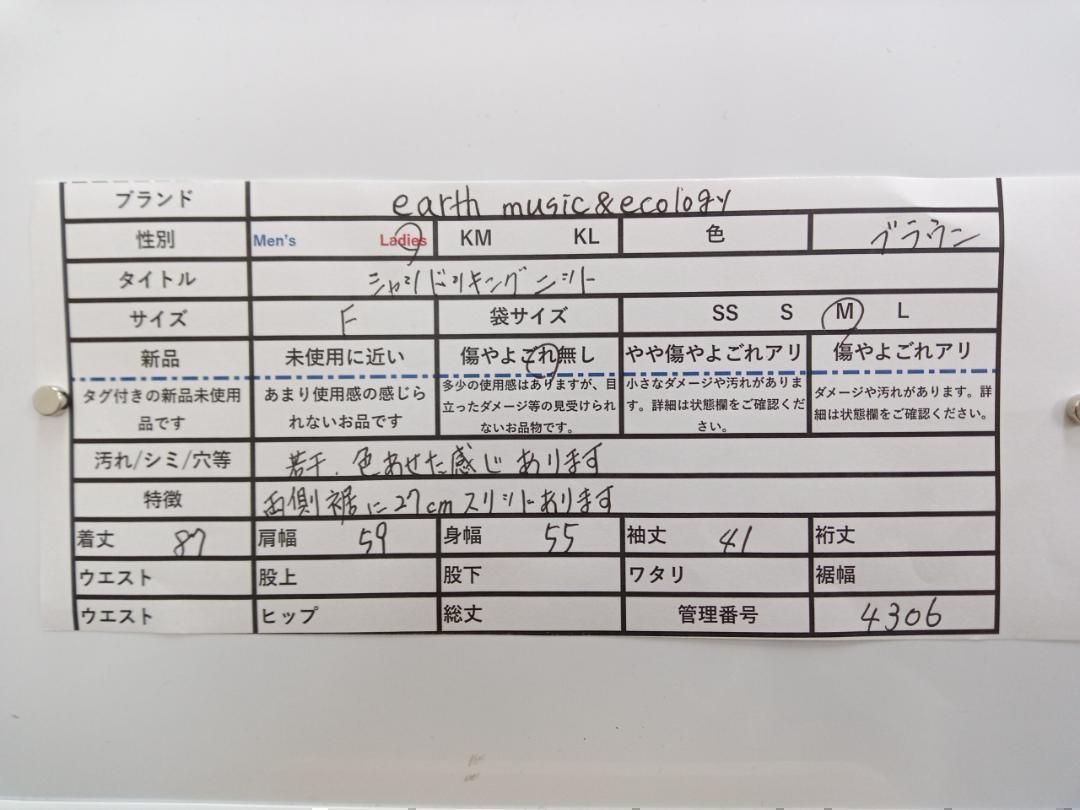 ブランド earth music&ecology
性別 Men's Ladies KM KL 色 ブラウン
タイトル シャツドッキングニット
サイズ F 袋サイズ SS S M L
新品 未使用に近い 傷やよごれ無し やや傷やよごれアリ 傷やよごれアリ
タグ付きの新品未使用品です
あまり使用感の感じられないお品です
多少の使用感はありますが、目立ったダメージ等の見受けられないお品物です。
小さなダメージや汚れがあります。詳細は状態欄をご確認ください。
ダメージや汚れがあります。詳細は状態欄をご確認ください。
汚れ/シミ/穴等 若干、色あせた感じあります
特徴 両側裾に27cmスリットあります
着丈 87 肩幅 59 身幅 55 袖丈 41 裄丈
ウエスト 股上 股下 ワタリ 裾幅
ウエスト ヒップ 総丈 管理番号 4306